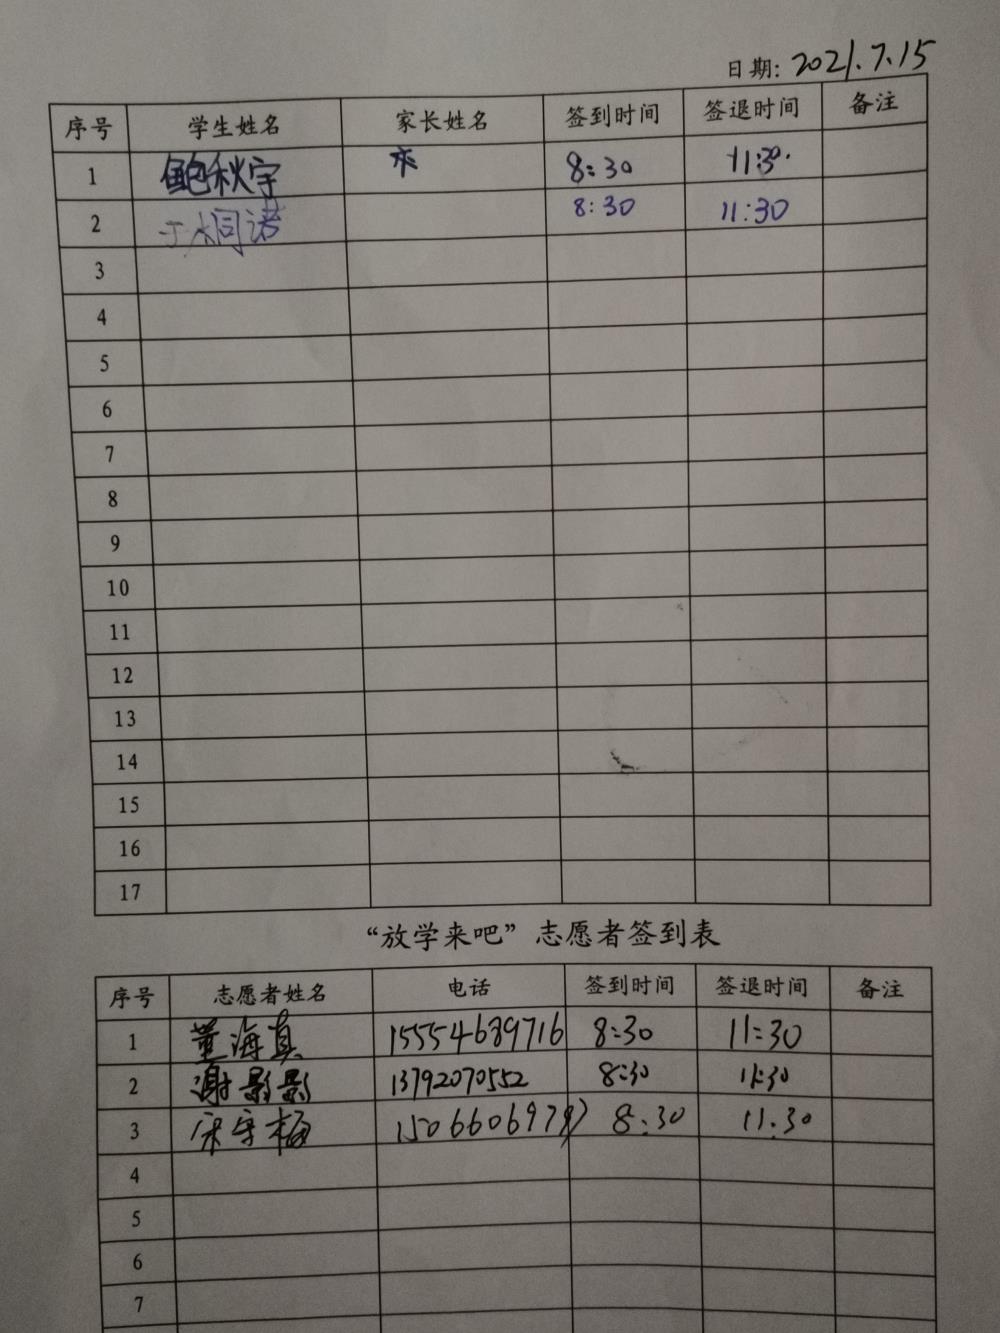 日期: 2021.7.15
序号 学生姓名 家长姓名 签到时间 签退时间 备注
1 鲍秋宇 8:30 11:30
2 8:30 11:30
3
4
5
6
7
8
9
10
11
12
13
14
15
16
17
“放学来吧”志愿者签到表
序号 志愿者姓名 电话 签到时间 签退时间 备注
1 董海真 15554689716 8:30 11:30
2 谢影影 13792070552 8:30 11:30
3 8:30 11:30
4
5
6
7